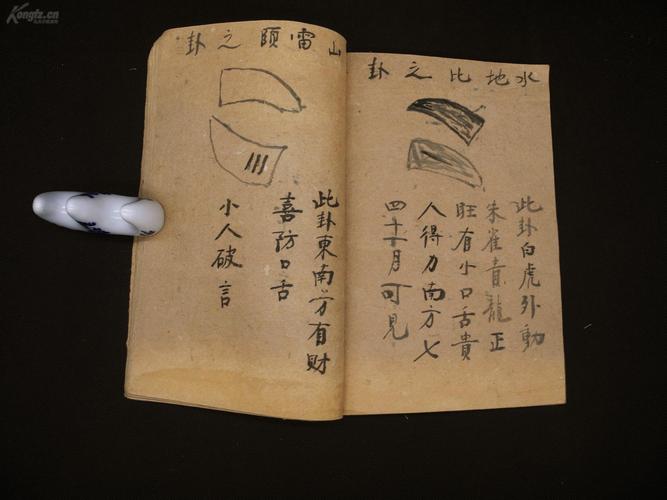 水地比之卦
此卦白虎外動
朱雀青龍正
旺有小口舌貴
人得力南方七
四十月可見
山雷頤之卦
此卦東南方有財
喜防口舌
小人破言
Kongfz.cn